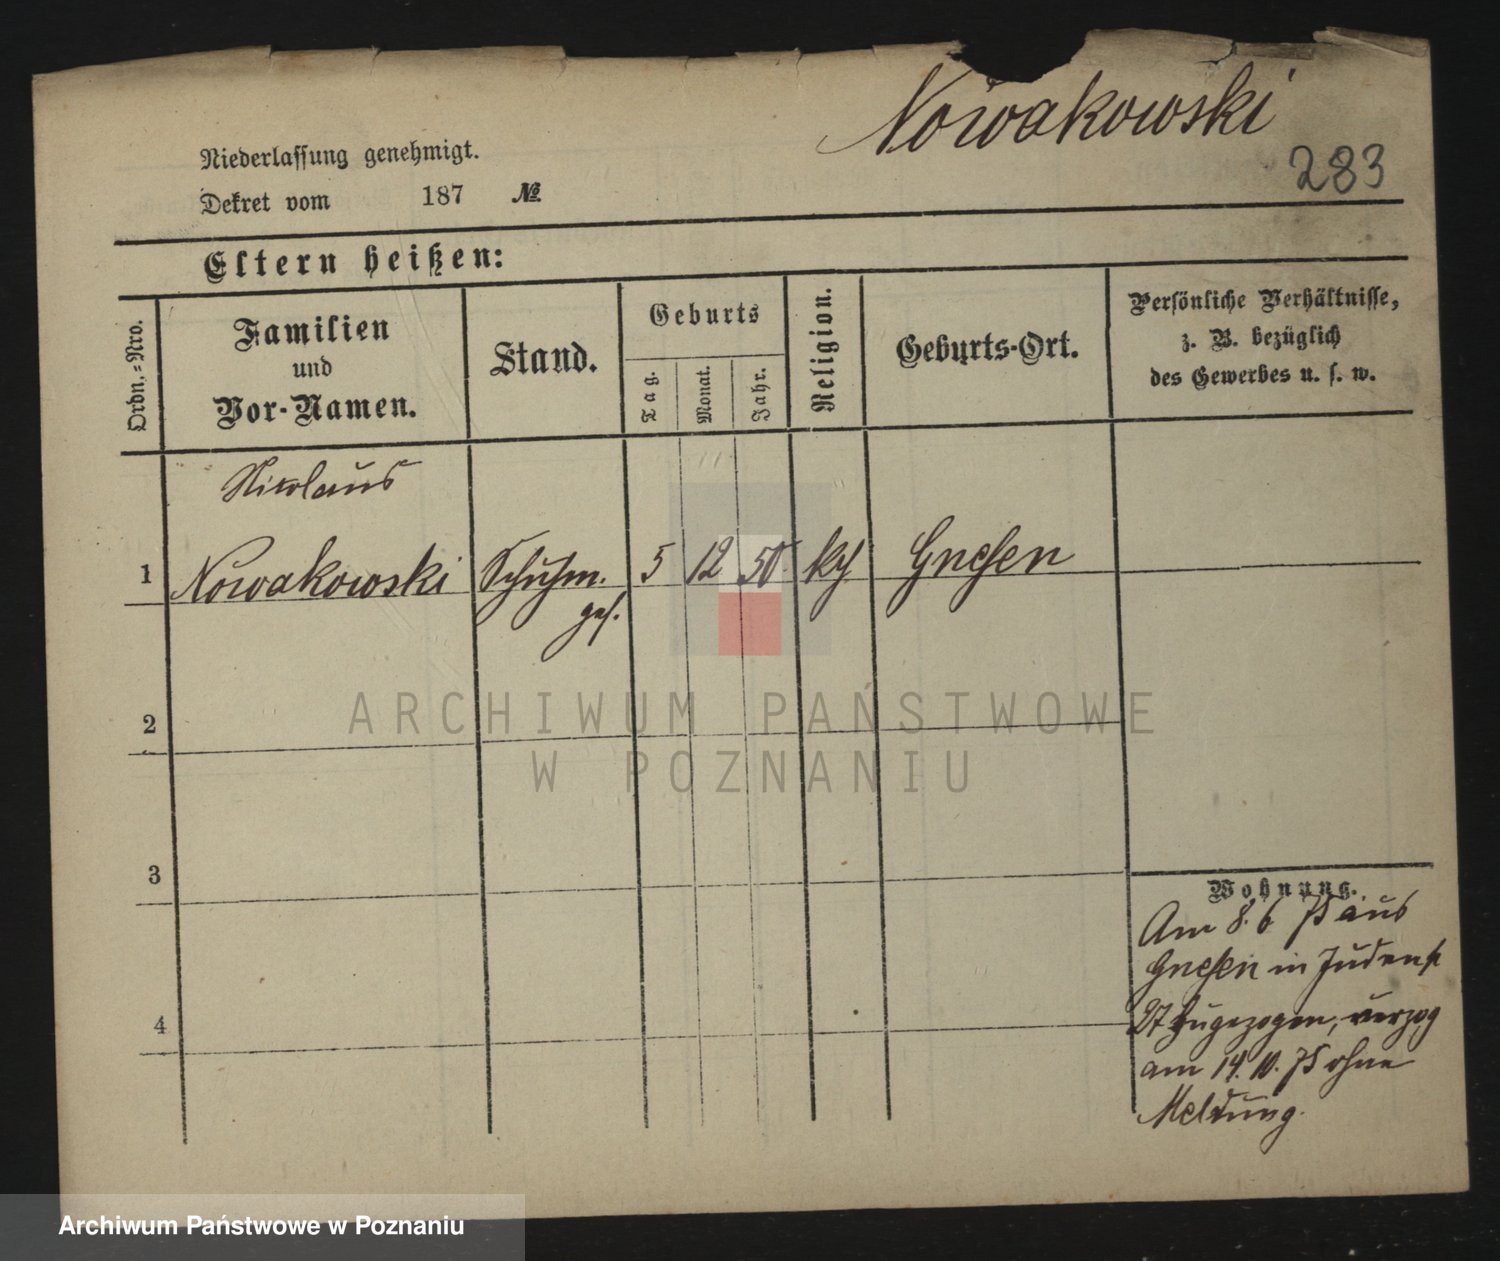 Nowakowski
283
Niederlassung genehmigt.
Dekret vom 187 №
Eltern heißen:
Ordn.-Nro.
Familien
und
Vor-Namen.
Stand.
Geburts
Tag.
Monat.
Jahr.
Religion.
Geburts-Ort.
Persönliche Verhältnisse,
z. B. bezüglich
des Gewerbes u. s. w.
Nikolaus
1 Nowakowski Schuhm. 5 12 50. kth Gnesen
ges.
2
3
4
Wohnung.
Am 8. 6 75 aus
Gnesen in Judenst
27 zugezogen, verzog
am 14. 10. 75 ohne
Meldung.
ARCHIWUM PAŃSTWOWE
W POZNANIU
Archiwum Państwowe w Poznaniu